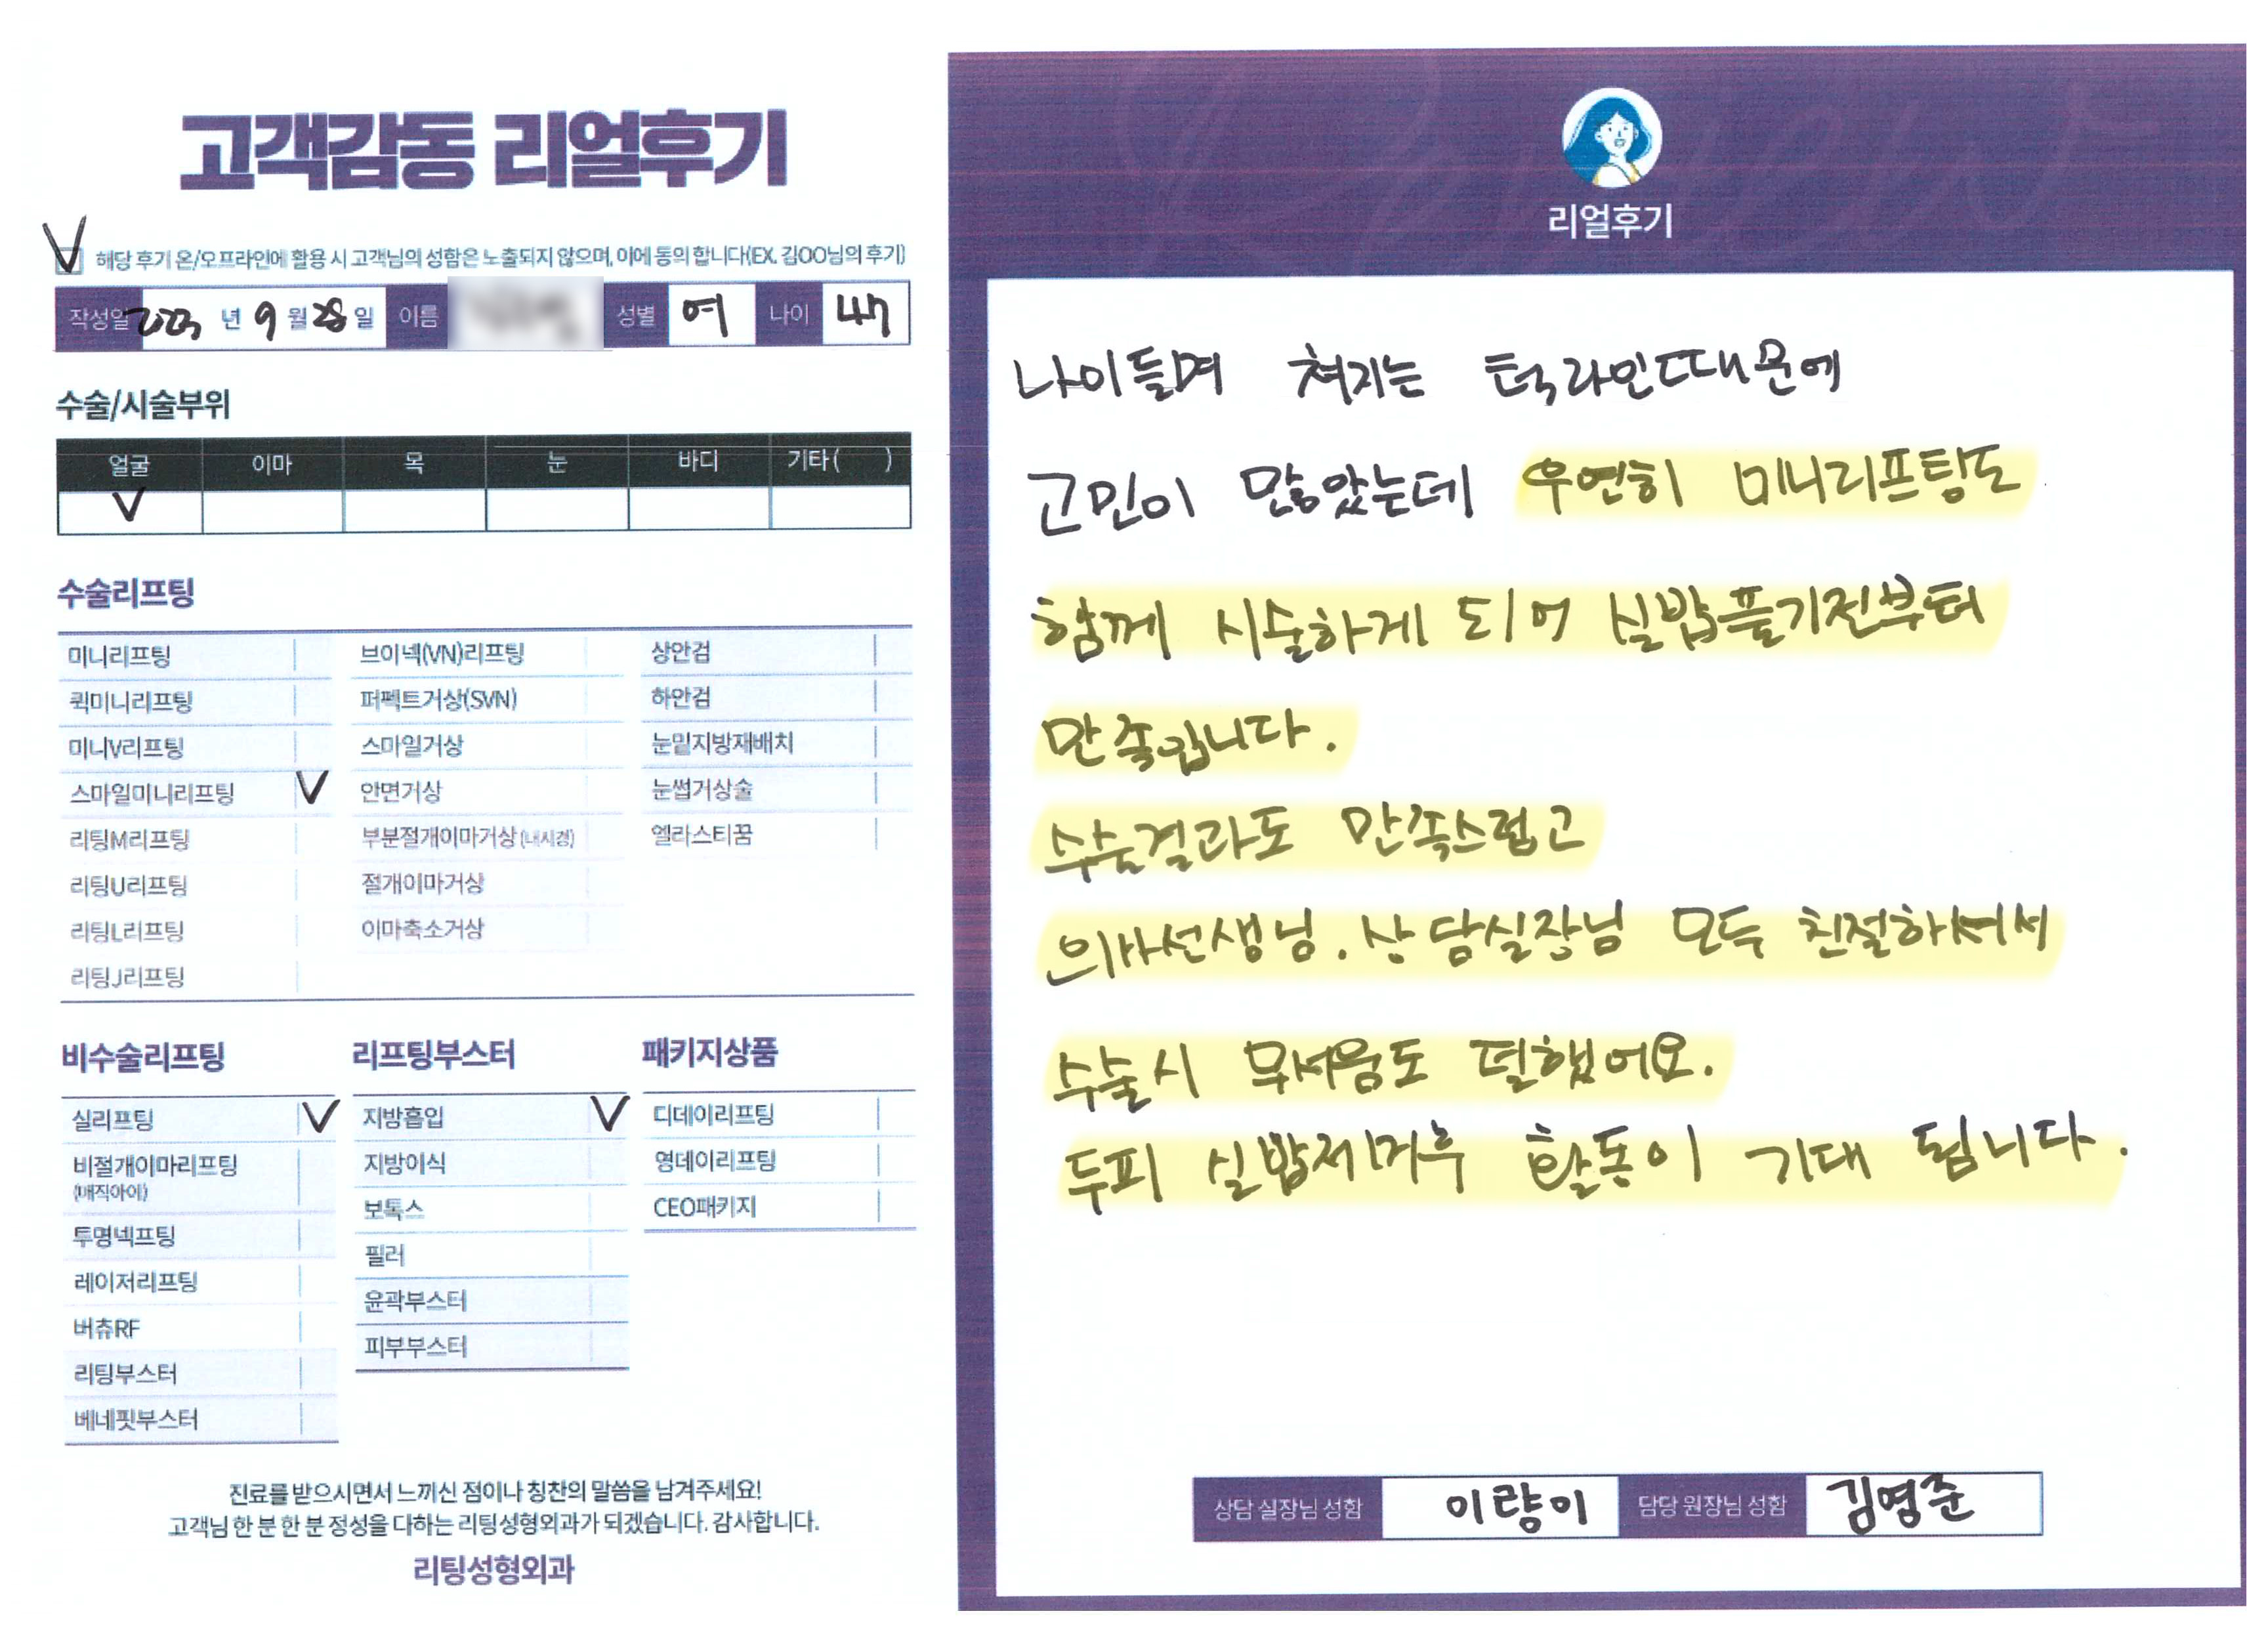 고객감동 리얼후기
해당 후기 온/오프라인에 활용 시 고객님의 성함은 노출되지 않으며, 이에 동의 합니다(EX. 김OO님의 후기)
작성일 2023 년 9 월 28 일 이름 성별 여 나이 47
수술/시술부위
얼굴 이마 목 눈 바디 기타( )
V
수술리프팅
미니리프팅 브이넥(VN)리프팅 상안검
퀵미니리프팅 퍼펙트거상(SVN) 하안검
미니V리프팅 스마일거상 눈밑지방재배치
스마일미니리프팅 V 안면거상 눈썹거상술
리팅M리프팅 부분절개이마거상(내시경) 엘라스티꿈
리팅U리프팅 절개이마거상
리팅L리프팅 이마축소거상
리팅J리프팅
비수술리프팅 리프팅부스터 패키지상품
실리프팅 V 지방흡입 V 디데이리프팅
비절개이마리프팅 지방이식 영데이리프팅
(매직아이)
투명넥프팅 보톡스 CEO패키지
레이저리프팅 필러
버츄RF 윤곽부스터
리팅부스터 피부부스터
베네핏부스터
진료를 받으시면서 느끼신 점이나 칭찬의 말씀을 남겨주세요!
고객님 한 분 한 분 정성을 다하는 리팅성형외과가 되겠습니다. 감사합니다.
리팅성형외과
리얼후기
나이들며 쳐지는 턱라인때문에
고민이 많았는데 우연히 미니리프팅도
함께 시술하게 되어 실밥풀기전부터
만족입니다.
수술결과도 만족스럽고
의사선생님. 상담실장님 모두 친절하셔서
수술시 무서움도 덜했어요.
두피 실밥제거후 활동이 기대 됩니다.
상담 실장님 성함 이량이 담당 원장님 성함 김영준